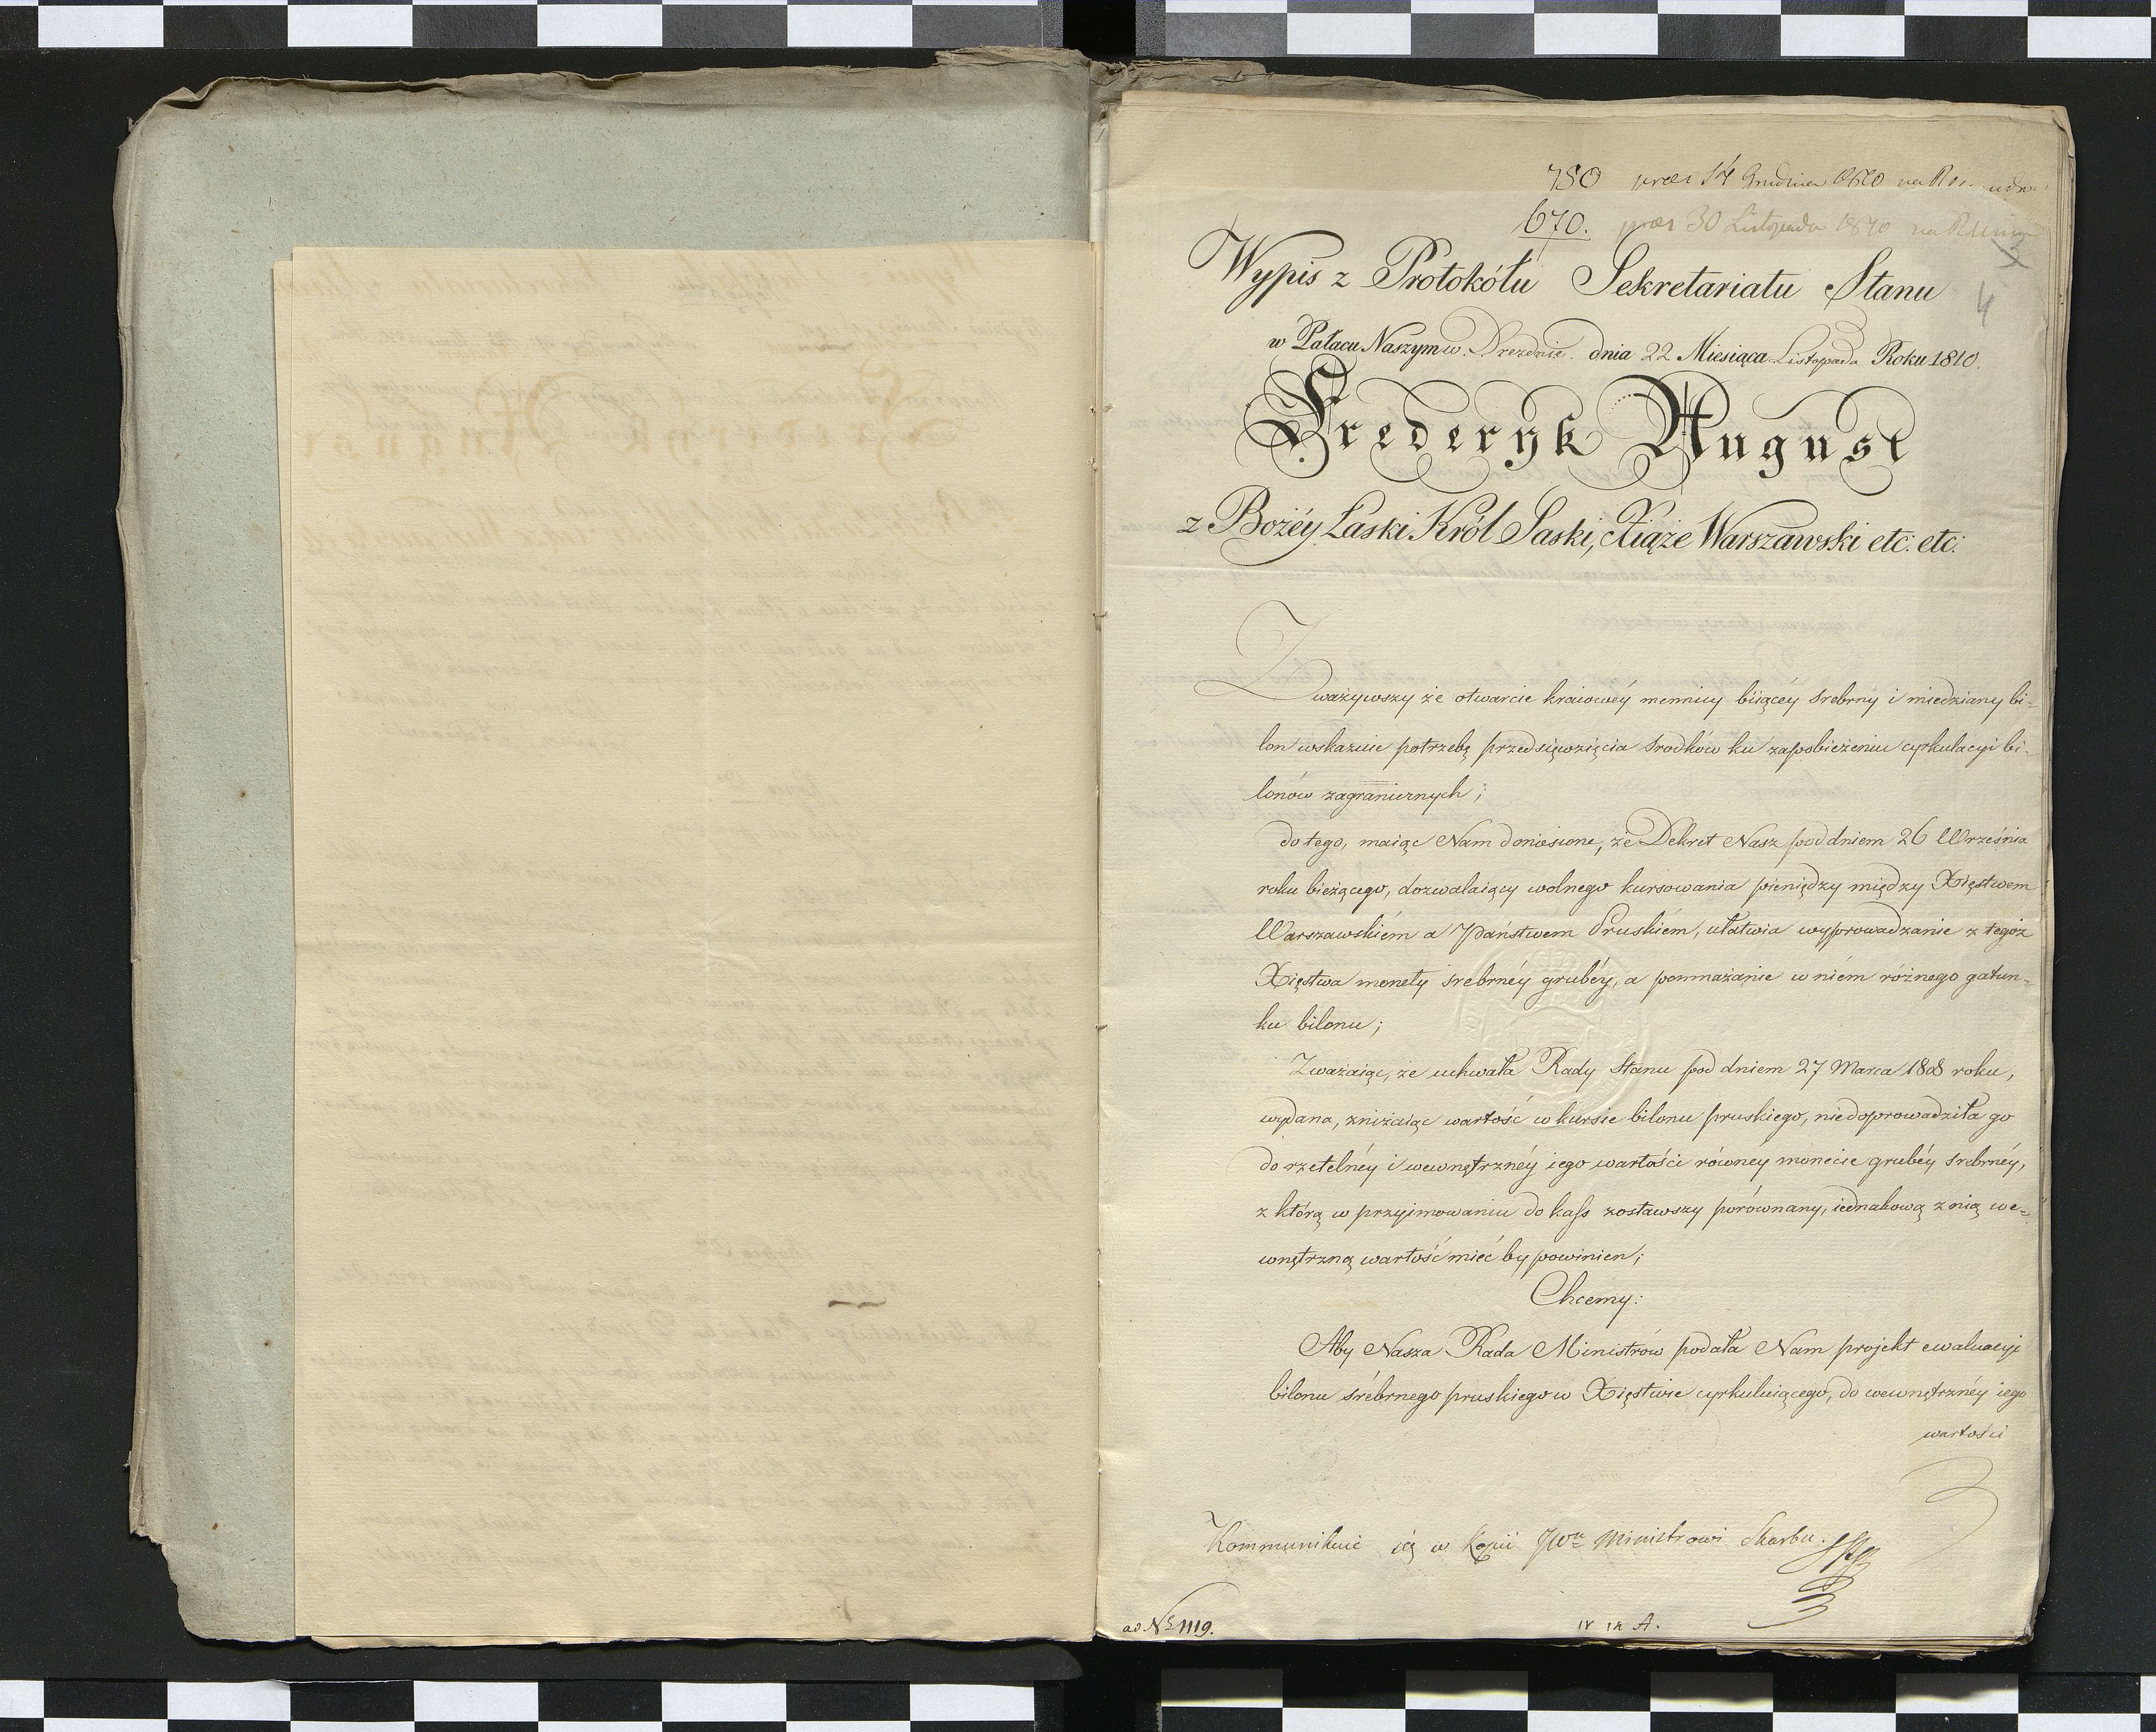 750 præs 14 Grudnia 1810 na R
670. præs 30 Listopada 1810 na
3
Wypis z Protokółu Sekretariatu Stanu
4
w Pałacu Naszym w Dreznie dnia 22 Miesiąca Listopada Roku 1810.
Frederyk August
z Bożéy Łaski Król Saski, Xiąże Warszawski etc: etc:
Zważywszy że otwarcie kraiowéy mennicy biiącéy srebrny i miedziany bi-
lon wskazuie potrzebę przedsięwzięcia srodków ku zapobieżeniu cyrkulacyi bi-
lonów zagranicznych;
do tego, maiąc Nam doniesione, że Dekret Nasz pod dniem 26 Września
roku bieżącego, dozwalaiący wolnego kursowania pieniędzy między Xięstwem
Warszawskiém a Państwem Pruskiém, ułatwia wyprowadzanie z tegoż
Xięstwa monety srebrnéy grubéy, a pomnażanie w niém różnego gatun-
ku bilonu;
Zważaiąc, że uchwała Rady Stanu pod dniem 27 Marca 1808 roku,
wydana, zniżaiąc wartość w kursie bilonu pruskiego, niedoprowadziła go
do rzetelnéy i wewnętrznéy iego wartości równey monecie grubéy srebrnéy,
z którą w przyimowaniu do kass zostawszy porównany, iednakową z nią we-
wnętrzną wartość mieć by powinien;
Chcemy:
Aby Nasza Rada Ministrów podała Nam projekt ewaluacyi
bilonu srébrnego pruskiego w Xięstwie cyrkuluiącego, do wewnętrznéy iego
wartości
Kommunikuie się w Kopii JWu Ministrowi Skarbu.
ad No 1119.